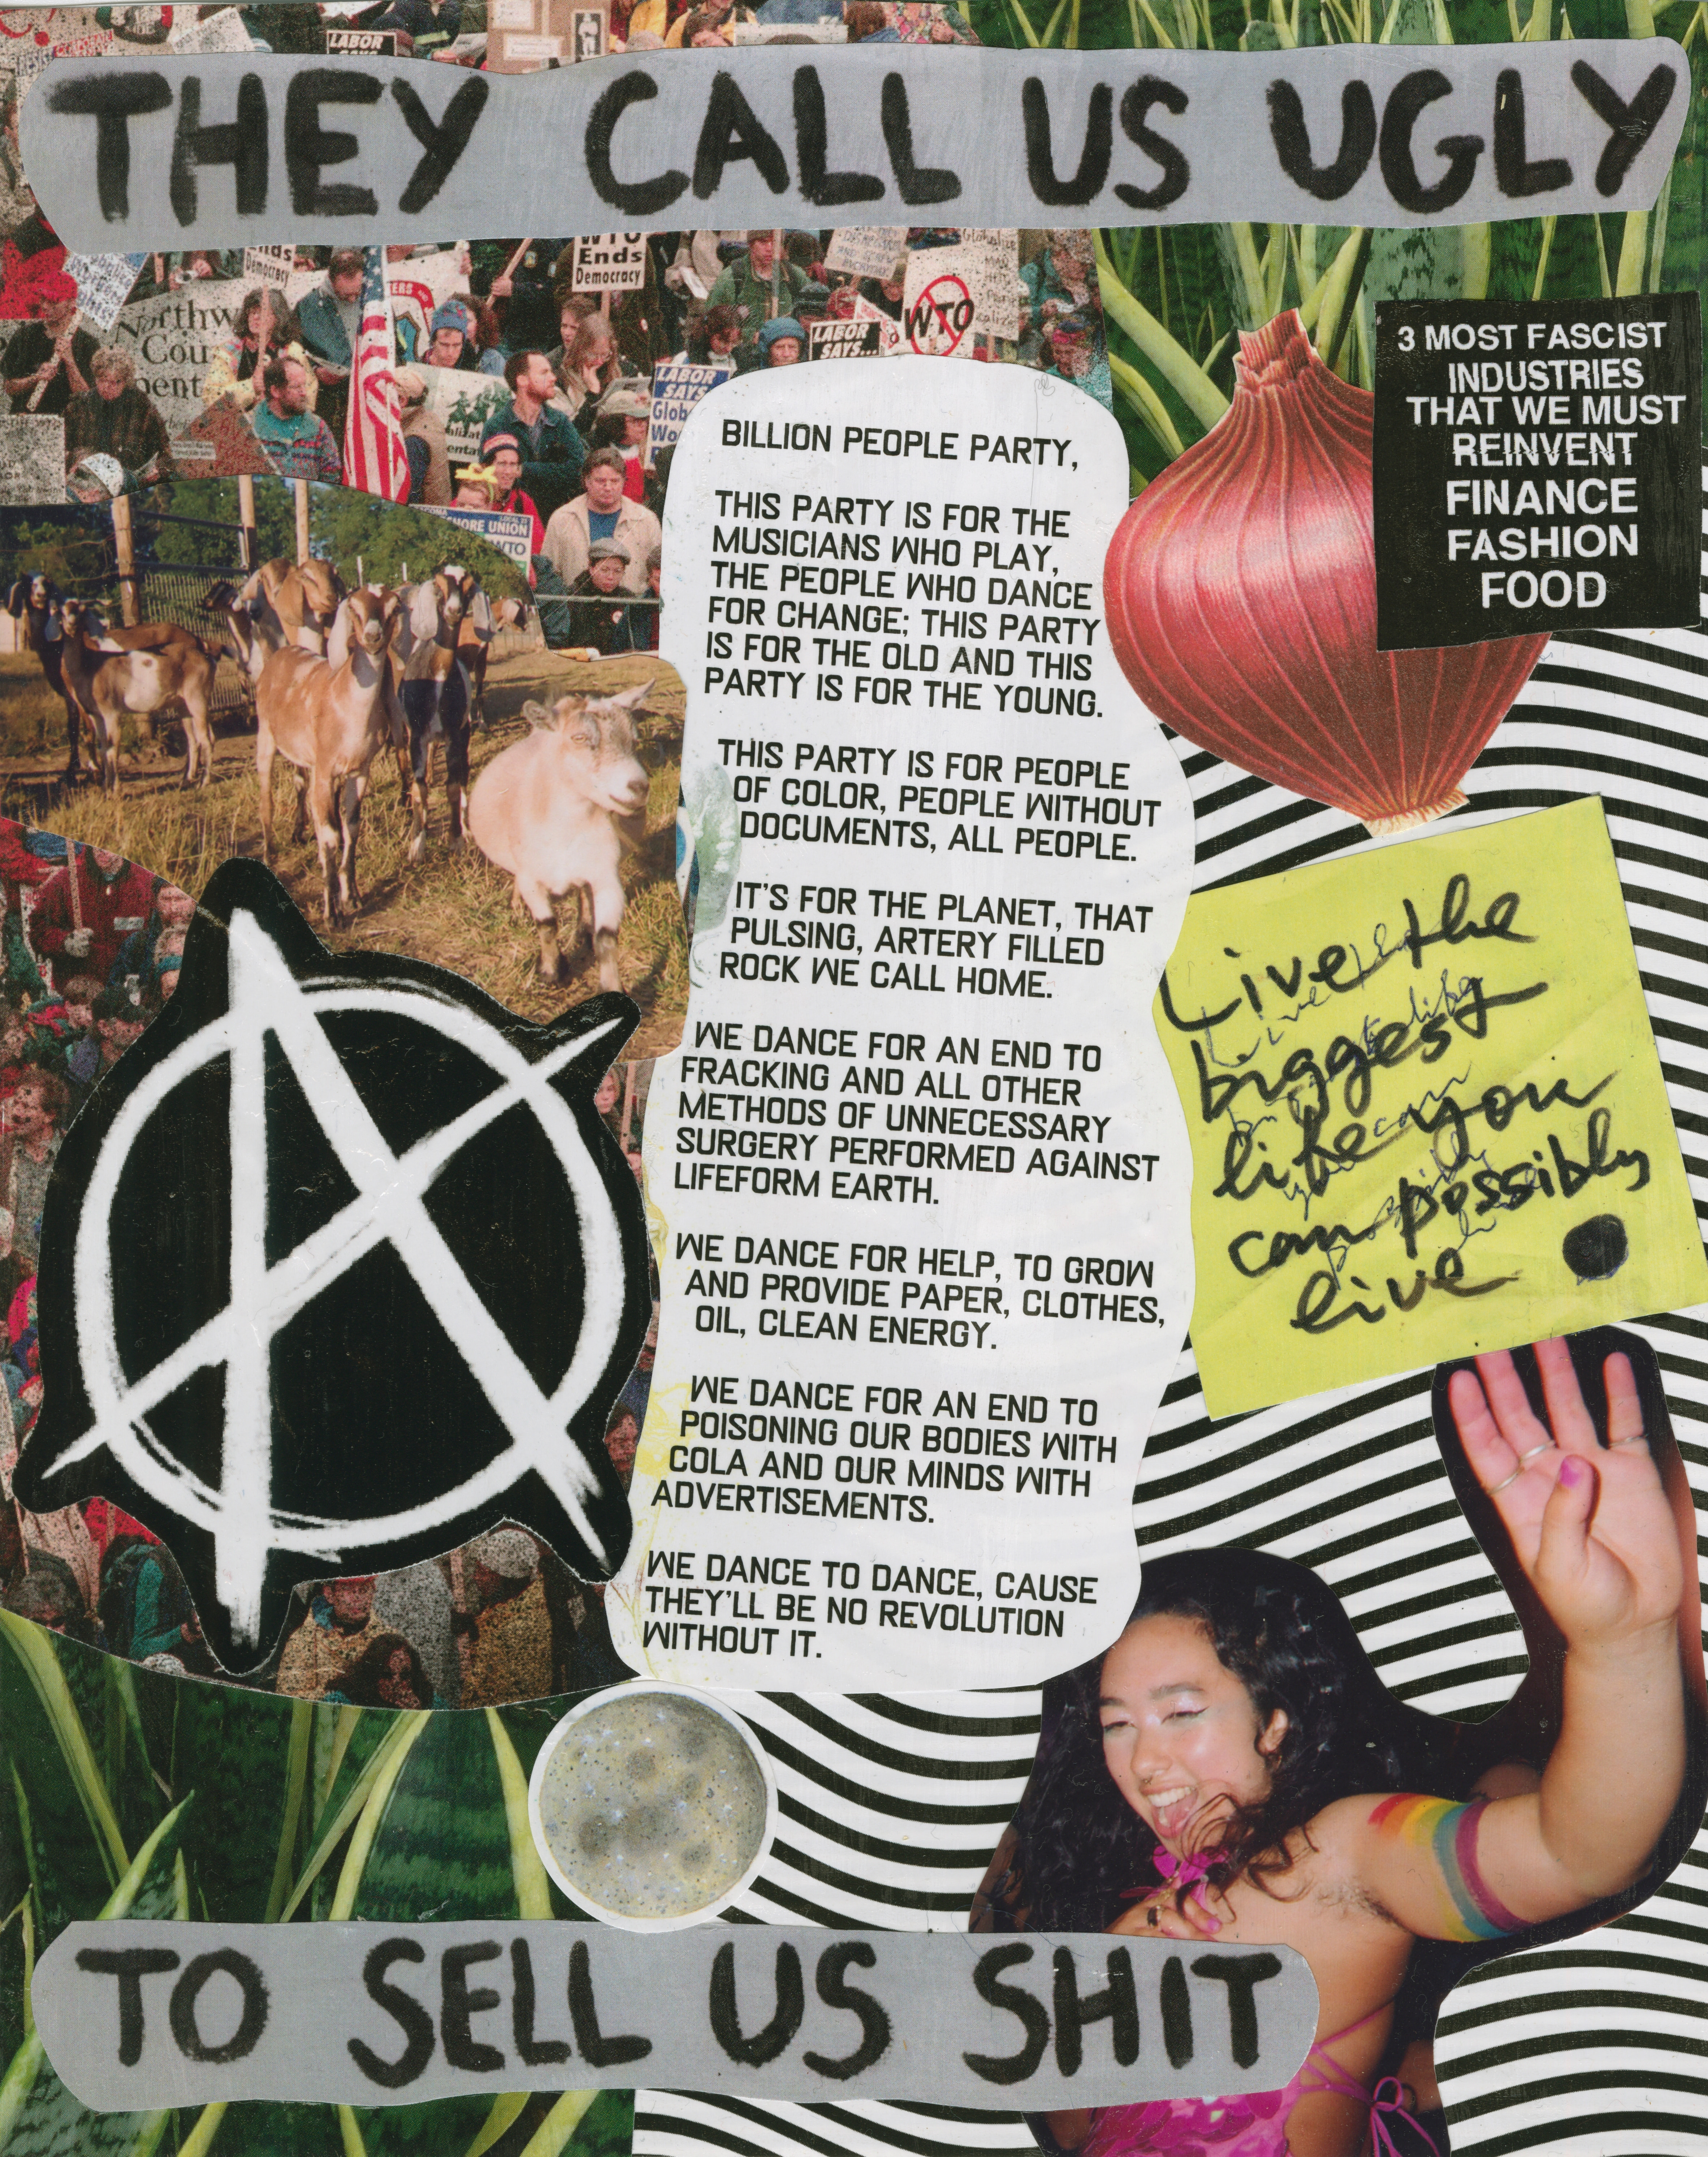 THEY CALL US UGLY
LABOR
Ends
Democracy
WTO
Ends
Democracy
Northw
Coun
LABOR
SAYS...
WTO
LABOR
SAYS
Glob
Wo
MORE UNION
WTO
3 MOST FASCIST
INDUSTRIES
THAT WE MUST
REINVENT
FINANCE
FASHION
FOOD
BILLION PEOPLE PARTY,
THIS PARTY IS FOR THE
MUSICIANS WHO PLAY,
THE PEOPLE WHO DANCE
FOR CHANGE; THIS PARTY
IS FOR THE OLD AND THIS
PARTY IS FOR THE YOUNG.
THIS PARTY IS FOR PEOPLE
OF COLOR, PEOPLE WITHOUT
DOCUMENTS, ALL PEOPLE.
IT'S FOR THE PLANET, THAT
PULSING, ARTERY FILLED
ROCK WE CALL HOME.
WE DANCE FOR AN END TO
FRACKING AND ALL OTHER
METHODS OF UNNECESSARY
SURGERY PERFORMED AGAINST
LIFEFORM EARTH.
WE DANCE FOR HELP, TO GROW
AND PROVIDE PAPER, CLOTHES,
OIL, CLEAN ENERGY.
WE DANCE FOR AN END TO
POISONING OUR BODIES WITH
COLA AND OUR MINDS WITH
ADVERTISEMENTS.
WE DANCE TO DANCE, CAUSE
THEY'LL BE NO REVOLUTION
WITHOUT IT.
Live the
biggest
life you
can possibly
live
TO SELL US SHIT